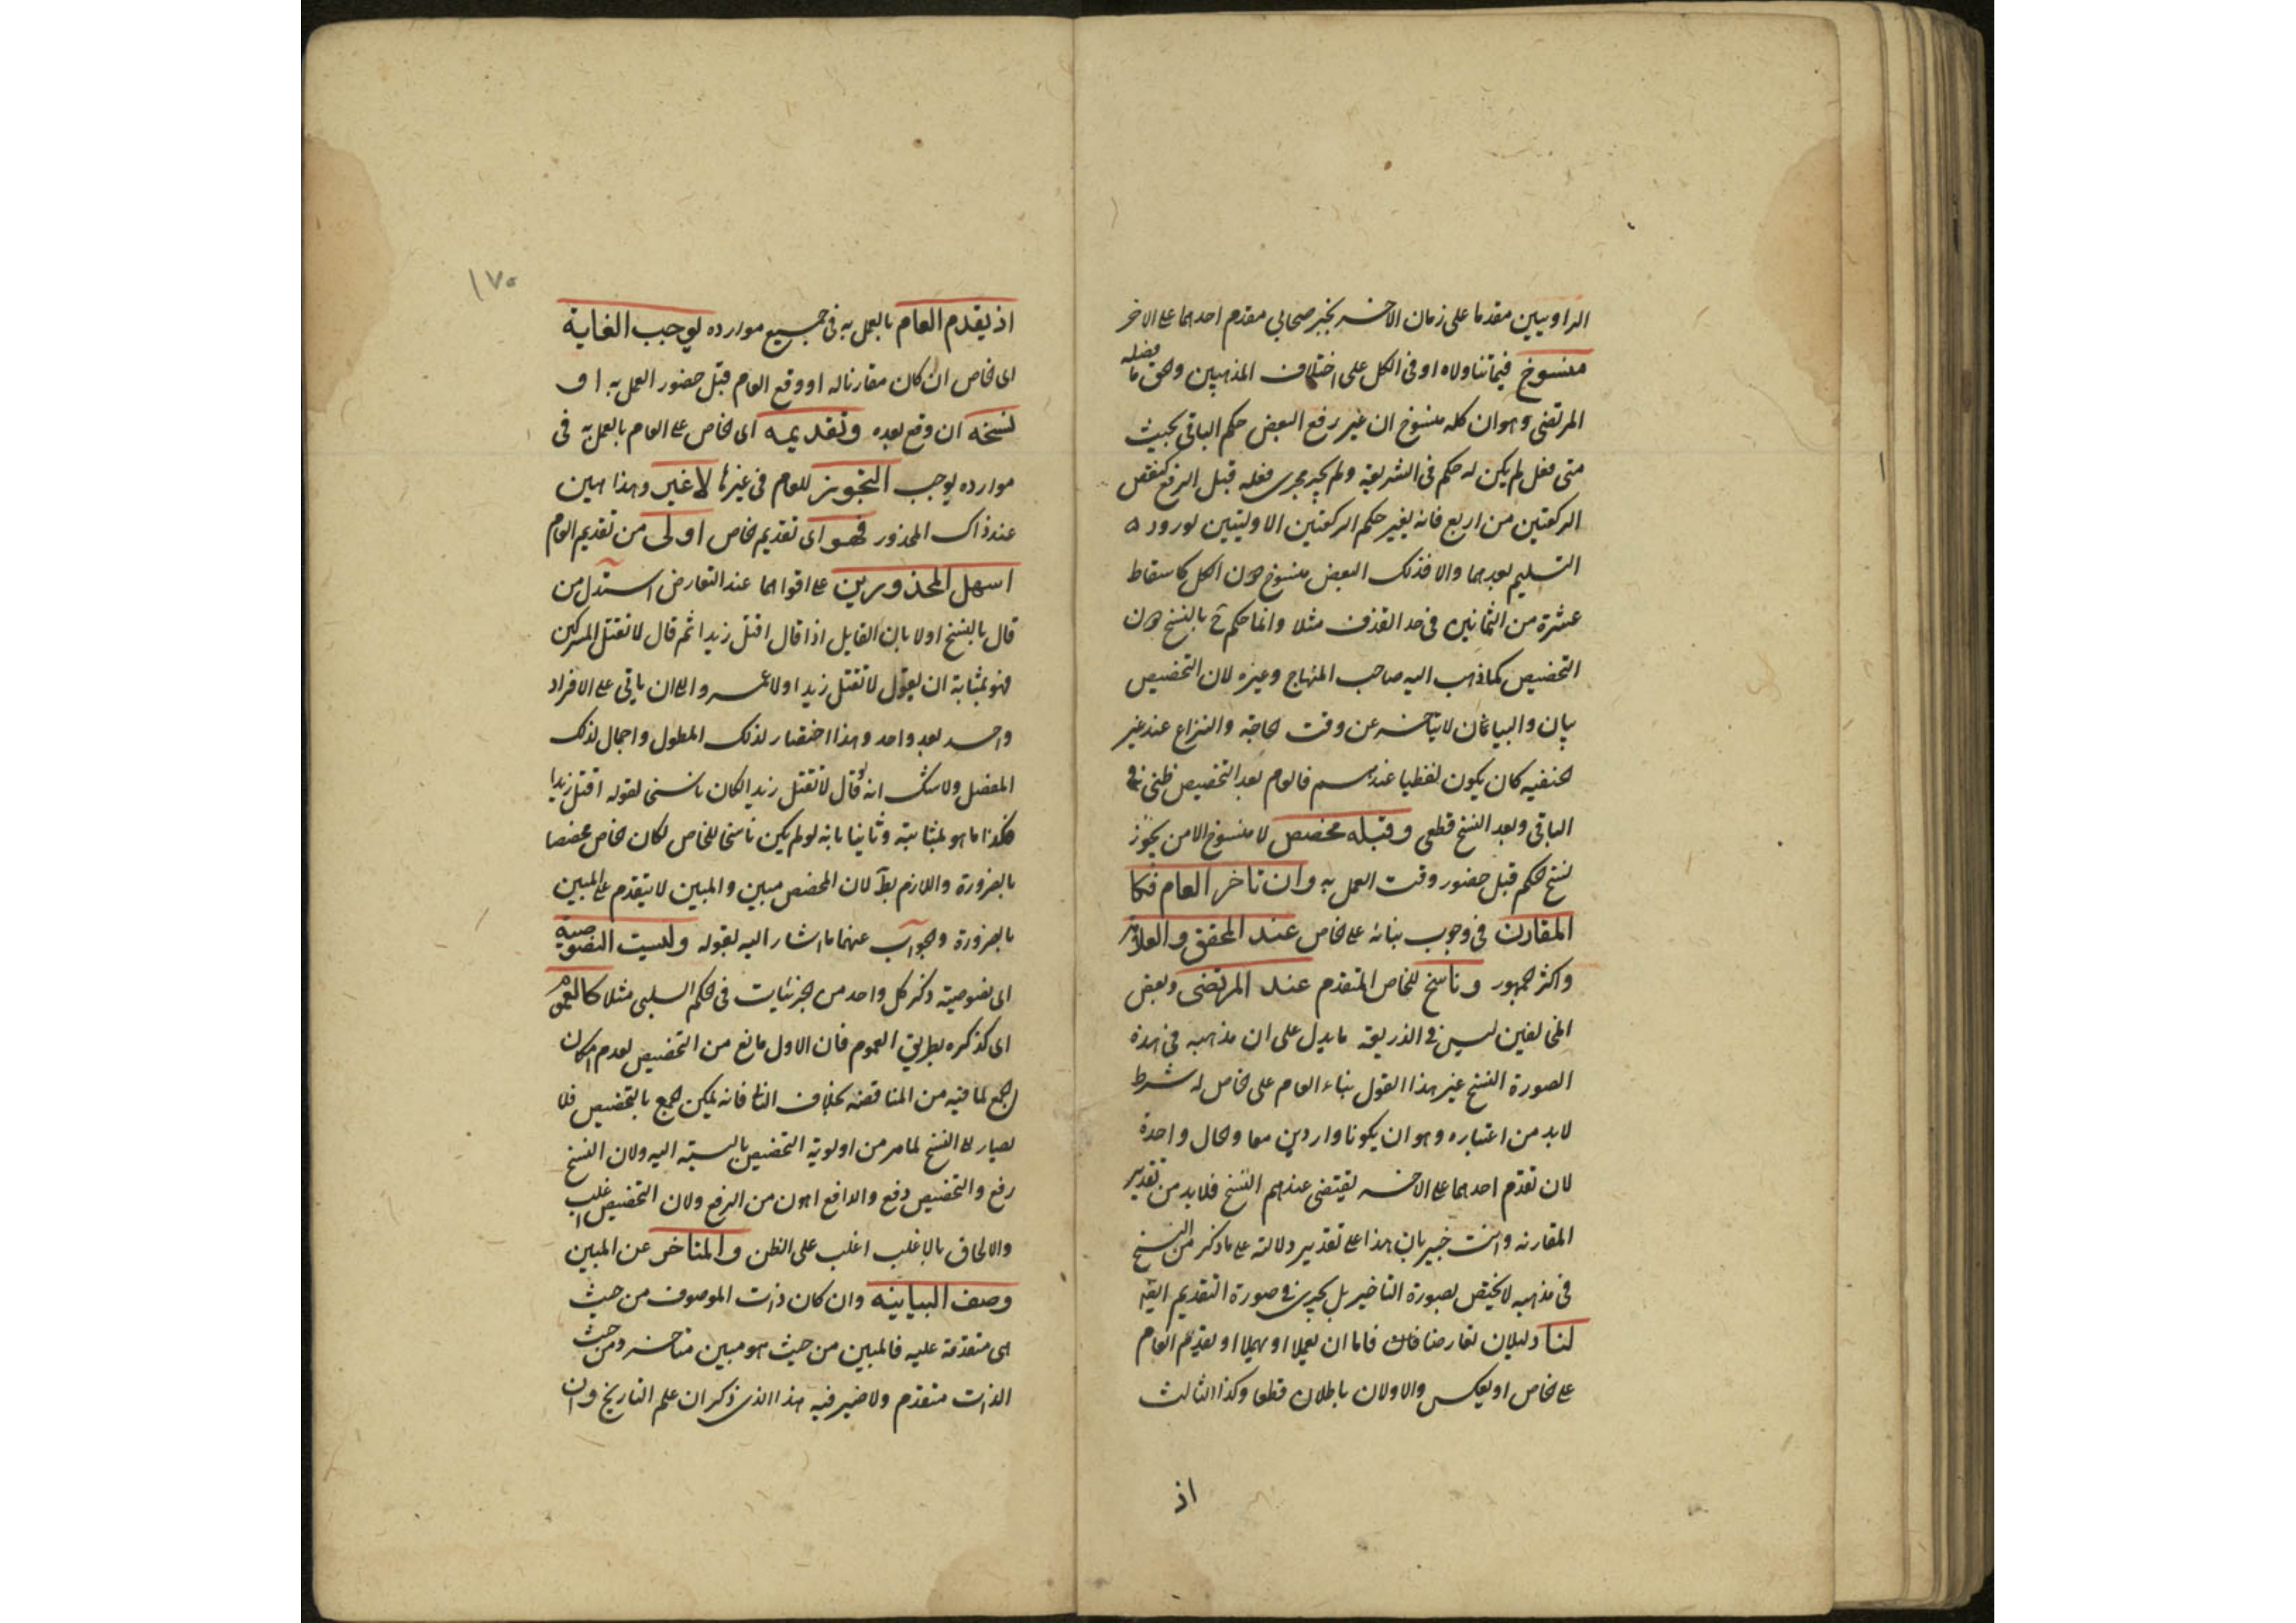 الراويين مقدما على زمان الاخر بخبر صحابي مقدم احدهما على الاخر
منسوخ فيما تناولاه او في الكل على اختلاف المذهبين والحق ما فصله
المرتضى وهو ان كله منسوخ ان غير رفع البعض حكم الباقي بحيث
متى فعل لم يكن له حكم في الشريعة ولم يجر مجرى فعله قبل الرفع كنقص
الركعتين من اربع فانه يغير حكم الركعتين الاوليتين لورود
التسليم بعدهما والا فذلك البعض منسوخ دون الكل كاسقاط
عشرة من الثمانين في حد القذف مثلا وانما حكم ح بالنسخ دون
التخصيص كما ذهب اليه صاحب المنهاج وغيره لان التخصيص
بيان والبيان لا يتاخر عن وقت الحاجة والنزاع عند غير
الحنفيه كان يكون لفظيا عندهم فالعام بعد التخصيص ظني في
الباقي وبعد النسخ قطعي وقبله مخصص لا منسوخ الا من يجوز
نسخ الحكم قبل حضور وقت العمل به وان تاخر العام فكا
المقارن في وجوب بنائه على الخاص عند المحقق والعلامة
واكثر الجمهور وناسخ للخاص المتقدم عند المرتضى وبعض
المخالفين ليس في الذريعة ما يدل على ان مذهبه في هذه
الصورة النسخ غير هذا القول بناء العام على الخاص له شرط
لا بد من اعتباره وهو ان يكونا واردين معا والحال واحدة
لان تقدم احدهما على الاخر يقتضي عندهم النسخ فلا بد من تقدير
المقارنه وانت خبير بان هذا على تقدير دلالته على ما ذكر من النسخ
في مذهبه لا يختص بصورة التاخير بل يجري في صورة التقديم ايضا
لنا دليلان تعارضا فاما ان يعملا او يهملا او يقدم العام
على الخاص او يعكس والاولان باطلان قطعا وكذا الثالث
اذ
١٧٥
اذ يقدم العام بالعمل به في جميع موارده يوجب الغاية
اى الخاص ان كان مقارنا له او وقع العام قبل حضور العمل به او
نسخه ان وقع بعده وتقديمه اى الخاص على العام بالعمل به في
موارده يوجب التجويز للعام في غيرها لا غير وهذا هين
عند ذاك المحذور فهو اى تقديم الخاص اولى من تقديم العام
اسهل المحذورين على اقواهما عند التعارض استدل من
قال بالنسخ اولا بان القايل اذا قال اقتل زيدا ثم قال لا تقتل المشركين
فهو بمثابة ان يقول لا تقتل زيدا ولا عمرو الى ان ياتي على الافراد
واحد بعد واحد وهذا اختصار لذلك المطول واجمال لذلك
المفصل ولا شك انه لو قال لا تقتل زيدا لكان ناسخا لقوله اقتل زيدا
فكذا ما هو بمثابته وثانيا بانه لو لم يكن ناسخا للخاص لكان الخاص مخصصا
بالضرورة واللازم بط لان المخصص مبين والمبين لا يتقدم على المبين
بالضرورة والجواب عنهما ما اشار اليه بقوله وليست النصوصية
اى نصوصية ذكر كل واحد من الجزئيات في الحكم السلبي مثلا كالعموم
اى كذكره بطريق العموم فان الاول مانع من التخصيص لعدم امكان
الجمع لما فيه من المناقضة بخلاف الثاني فانه يمكن الجمع بالتخصيص فلا
يصار الى النسخ لما مر من اولوية التخصيص بالنسبة اليه ولان النسخ
رفع والتخصيص دفع والدافع اهون من الرفع ولان التخصيص اغلب
والالحاق بالاغلب اغلب على الظن والمتاخر عن المبين
وصف البيانيه وان كان ذات الموصوف من حيث
هى متقدمة عليه فالمبين من حيث هو مبين متاخر ومن حيث
الذات متقدم ولا ضير فيه هذا الذى ذكر ان علم التاريخ وان